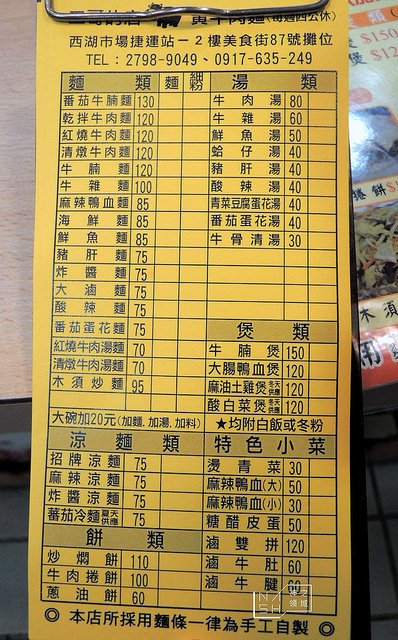 黃牛肉麵(每週四公休)
西湖市場捷運站－2樓美食街87號攤位
TEL：2798-9049、0917-635-249
麵 類 麵 細粉
番茄牛腩麵 130
乾拌牛肉麵 120
紅燒牛肉麵 120
清燉牛肉麵 120
牛腩麵 120
牛雜麵 100
麻辣鴨血麵 85
海鮮麵 85
鮮魚麵 85
豬肝麵 75
炸醬麵 75
大滷麵 75
酸辣麵 75
番茄蛋花麵 75
紅燒牛肉湯麵 70
清燉牛肉湯麵 70
木須炒麵 95
大碗加20元(加麵.加湯.加料)
湯 類
牛肉湯 80
牛雜湯 60
鮮魚湯 50
蛤仔湯 40
豬肝湯 40
酸辣湯 40
青菜豆腐蛋花湯 40
番茄蛋花湯 40
牛骨清湯 30
煲 類
牛腩煲 150
大腸鴨血煲 120
麻油土雞煲 冬天供應 120
酸白菜煲 冬天供應 120
★均附白飯或冬粉
涼麵類
招牌涼麵 75
麻辣涼麵 75
炸醬涼麵 75
蕃茄冷麵 夏天供應 75
餅 類
炒燜餅 110
牛肉捲餅 100
蔥油餅 60
特色小菜
燙青菜 30
麻辣鴨血(大) 50
麻辣鴨血(小) 30
糖醋皮蛋 50
滷雙拼 120
滷牛肚 60
滷牛腱
◎本店所採用麵條一律為手工自製◎
$150
$12
捲餅
木須